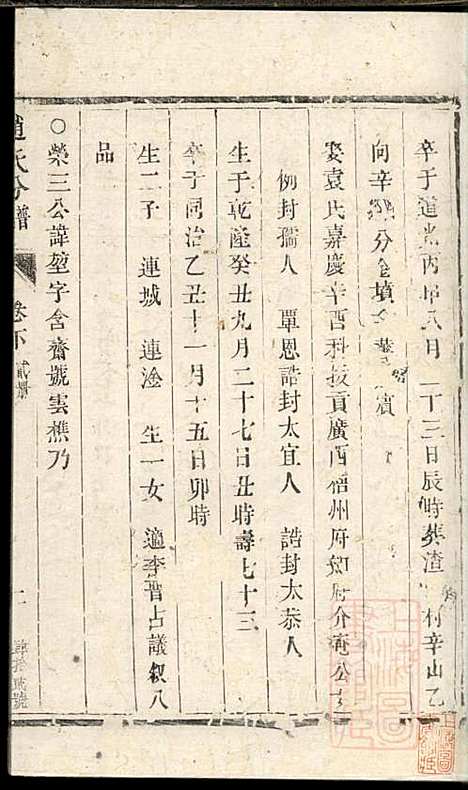 卒于道光丙申八月二十三日辰時葬渣村辛山乙
向辛分金墳
娶袁氏嘉慶辛酉科拔貢廣西梧州府知府介庵公女
例封孺人 覃恩誥封太宜人 誥封太恭人
生于乾隆癸丑九月二十七日丑時壽七十三
卒于同治乙丑十一月十五日卯時
生二子 連城 連淦 生一女 適李晋占議敘八
品
○榮三公諱堃字含齋號雲樵乃
趙氏分譜 卷下 貳冊